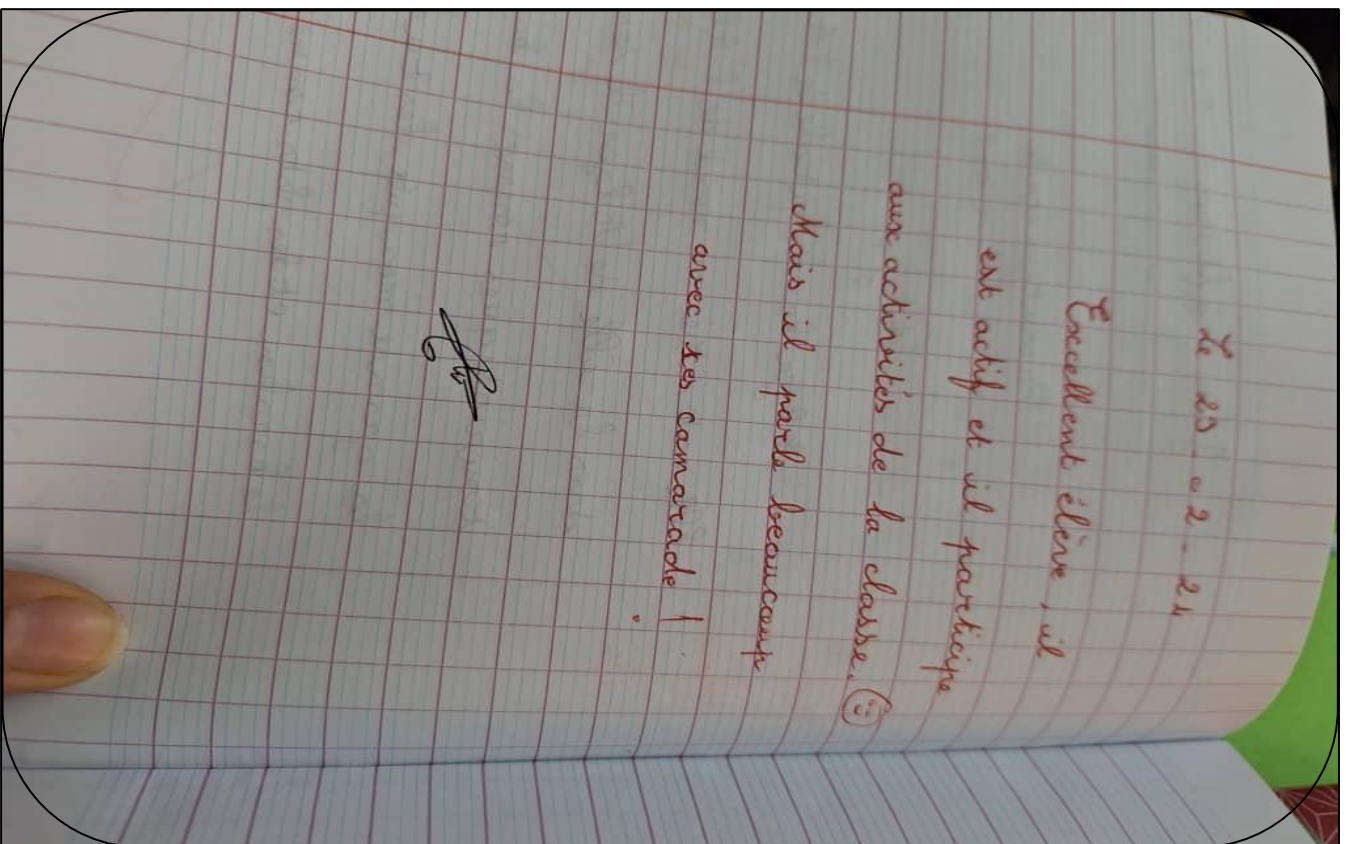 Le 23-02-24
Excellent élève, il
est actif et il participe
aux activités de la classe.
Mais il parle beaucoup
avec ses camarade !